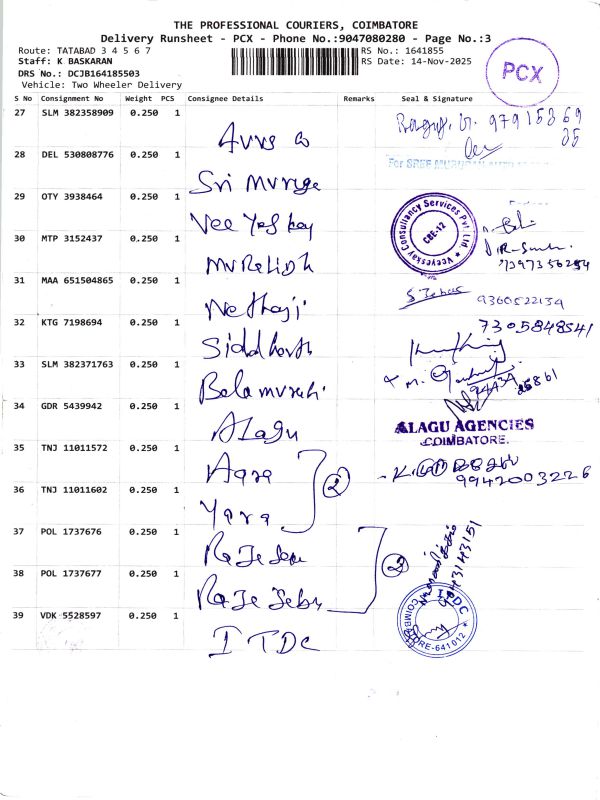 THE PROFESSIONAL COURIERS, COIMBATORE
Delivery Runsheet - PCX - Phone No.:9047080280 - Page No.:3
Route: TATABAD 3 4 5 6 7
RS No.: 1641855
Staff: K BASKARAN
RS Date: 14-Nov-2025
DRS No.: DCJB164185503
Vehicle: Two Wheeler Delivery
PCX
S No Consignment No Weight PCS Consignee Details Remarks Seal & Signature
27 SLM 382358909 0.250 1
97915369
35
28 DEL 530808776 0.250 1
For SREE
Sri Muruge
29 OTY 3938464 0.250 1
Veeyeskay Consultancy Services Pvt. Ltd.
CBE-12
30 MTP 3152437 0.250 1
31 MAA 651504865 0.250 1
9360522134
Nethaji
32 KTG 7198694 0.250 1
7305848541
Siddharth
33 SLM 382371763 0.250 1
34 GDR 5439942 0.250 1
ALAGU AGENCIES
COIMBATORE.
Alagu
35 TNJ 11011572 0.250 1
9942003226
2
36 TNJ 11011602 0.250 1
Yara
37 POL 1737676 0.250 1
38 POL 1737677 0.250 1
2
39 VDK 5528597 0.250 1
ITDC
COIMBATORE-641012
ITDC